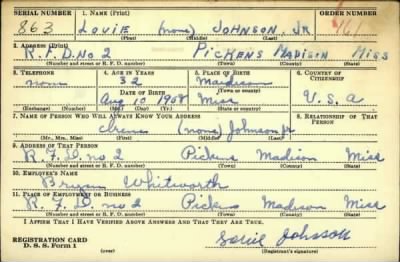 SERIAL NUMBER 1. NAME (Print) ORDER NUMBER
863 LOUIE (none) JOHNSON, JR 461
(First) (Middle) (Last)
2. ADDRESS (Print)
R.F.D. No 2 PICKENS MADISON MISS
(Number and street or R. F. D. number) (Town) (County) (State)
3. TELEPHONE 4. AGE IN YEARS 5. PLACE OF BIRTH 6. COUNTRY OF CITIZENSHIP
none 32 Madison
DATE OF BIRTH (Town or county)
Aug 10 1908 Miss U.S.a
(Exchange) (Number) (Mo.) (Day) (Yr.) (State or country)
7. NAME OF PERSON WHO WILL ALWAYS KNOW YOUR ADDRESS 8. RELATIONSHIP OF THAT PERSON
Irene (none) Johnson jr
(Mr., Mrs., Miss) (First) (Middle) (Last)
9. ADDRESS OF THAT PERSON
R.F.D. no 2 Pickens Madison Miss
(Number and street or R. F. D. number) (Town) (County) (State)
10. EMPLOYER'S NAME
Bryan Whitworth
11. PLACE OF EMPLOYMENT OR BUSINESS
R.F.D no 2 Pickens Madison Miss
(Number and street or R. F. D. number) (Town) (County) (State)
I AFFIRM THAT I HAVE VERIFIED ABOVE ANSWERS AND THAT THEY ARE TRUE.
REGISTRATION CARD
D. S. S. Form 1 (over) Johnson
(Registrant's signature)